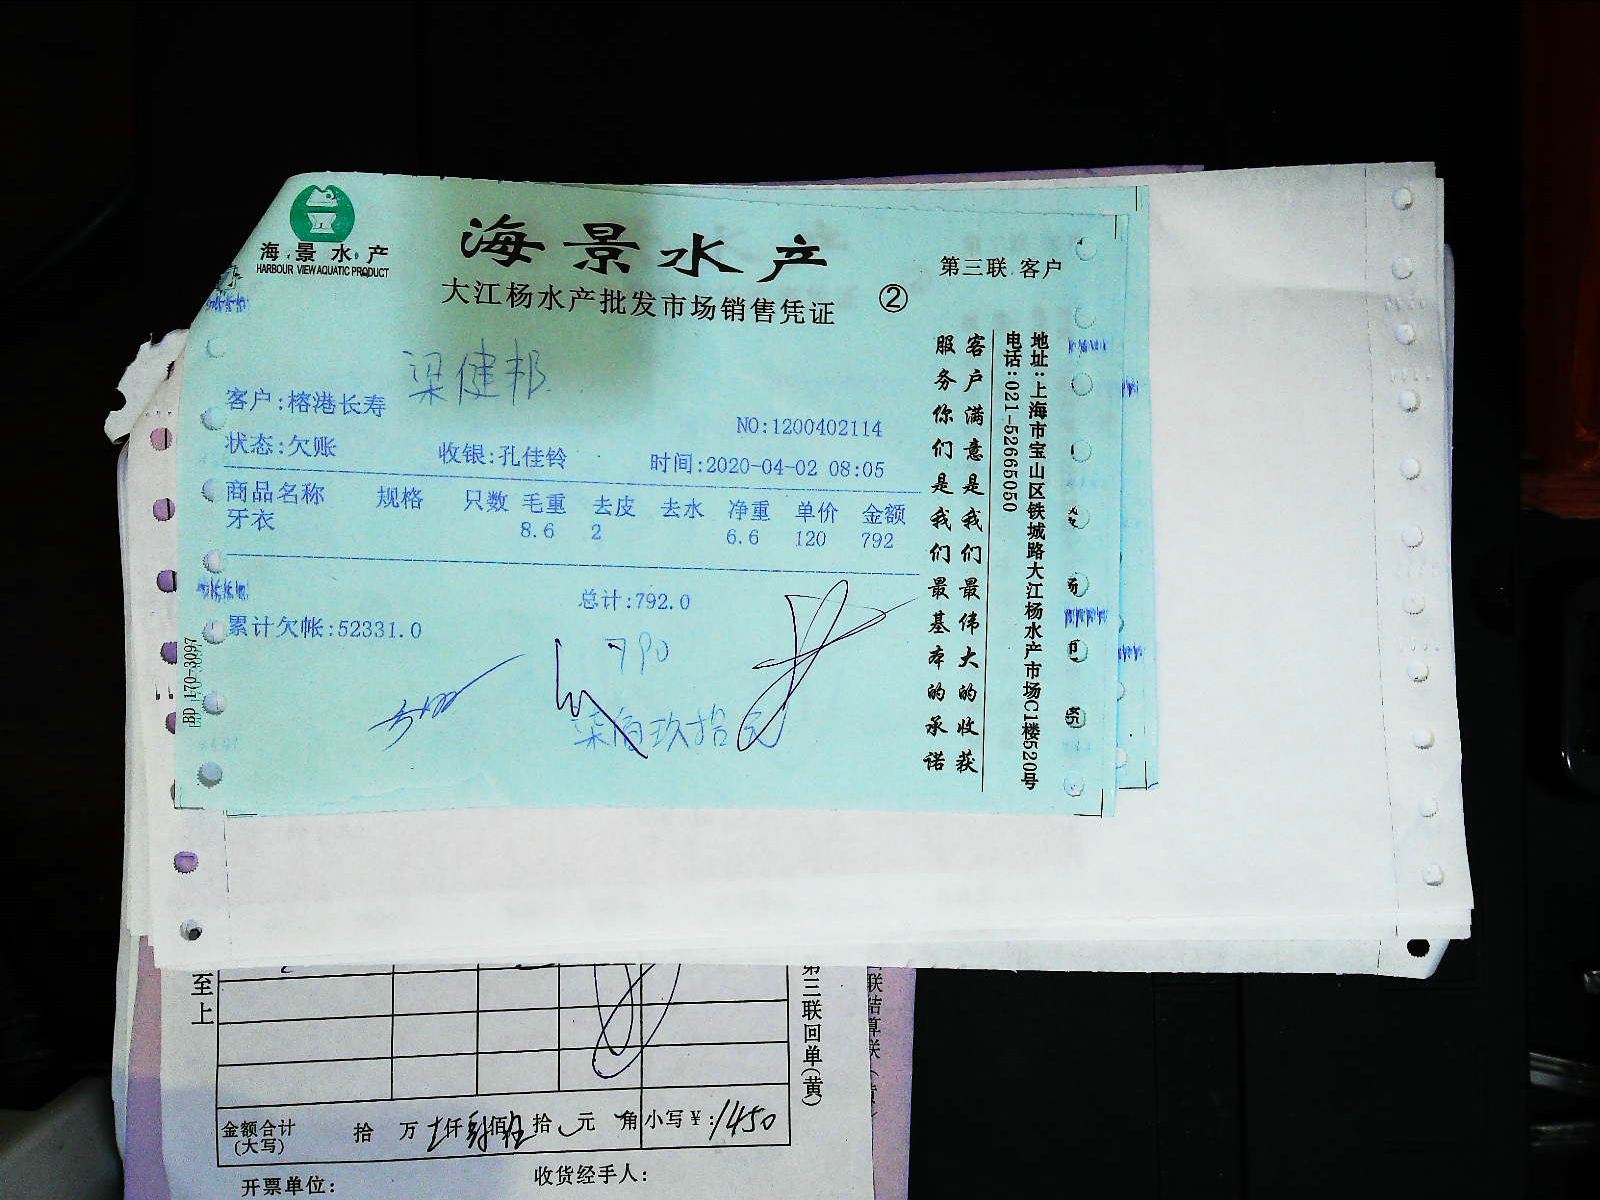 海景水产
HARBOUR VIEW AQUATIC PRODUCT
海景水产
大江杨水产批发市场销售凭证
②
第三联 客户
梁健邦
客户:榕港长寿
NO:1200402114
状态:欠账 收银:孔佳铃 时间:2020-04-02 08:05
商品名称 规格 只数 毛重 去皮 去水 净重 单价 金额
牙衣 8.6 2 6.6 120 792
总计:792.0
累计欠帐:52331.0
790
柒佰玖拾元
BD 170-3097
客户满意是我们最伟大的收获
服务你们是我们最基本的承诺
地址:上海市宝山区铁城路大江杨水产市场C1楼520号
电话:021-52665050
至上
第三联回单(黄)
联结算联
金额合计
(大写)
拾 万 仟 佰 拾 元 角 小写¥:1450
开票单位:
收货经手人: